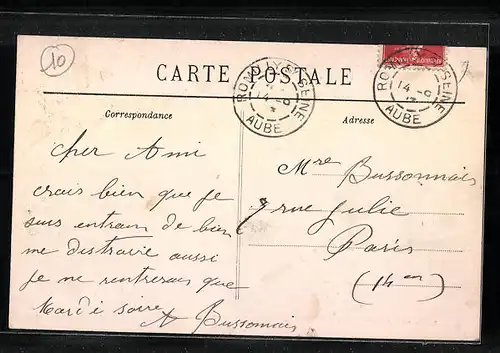 10
CARTE POSTALE
ROMILLY-S-SEINE
14 -9
AUBE
ROMILLY-S-SEINE
14 -9
AUBE
Correspondance
Adresse
cher Ami
crais bien que je
suis entrain de bien
me distraire aussi
je ne rentrerais que
Mardi soir
A Bussonnais
Mre Bussonnais
7 rue Julie
Paris
(14 er)